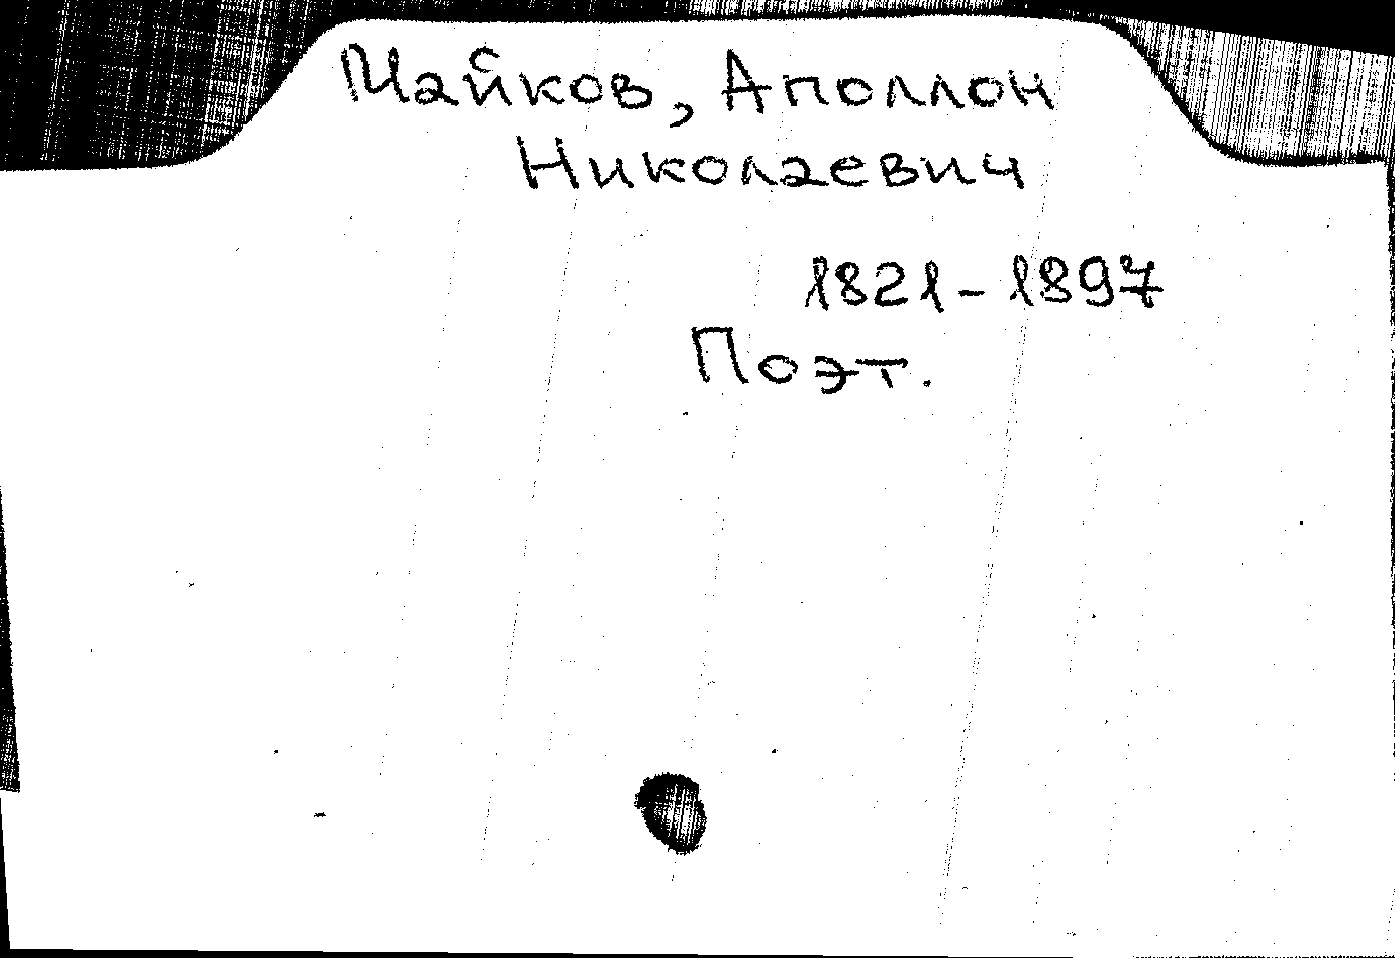 Майков, Аполлон
Николаевич
1821-1897
Поэт.